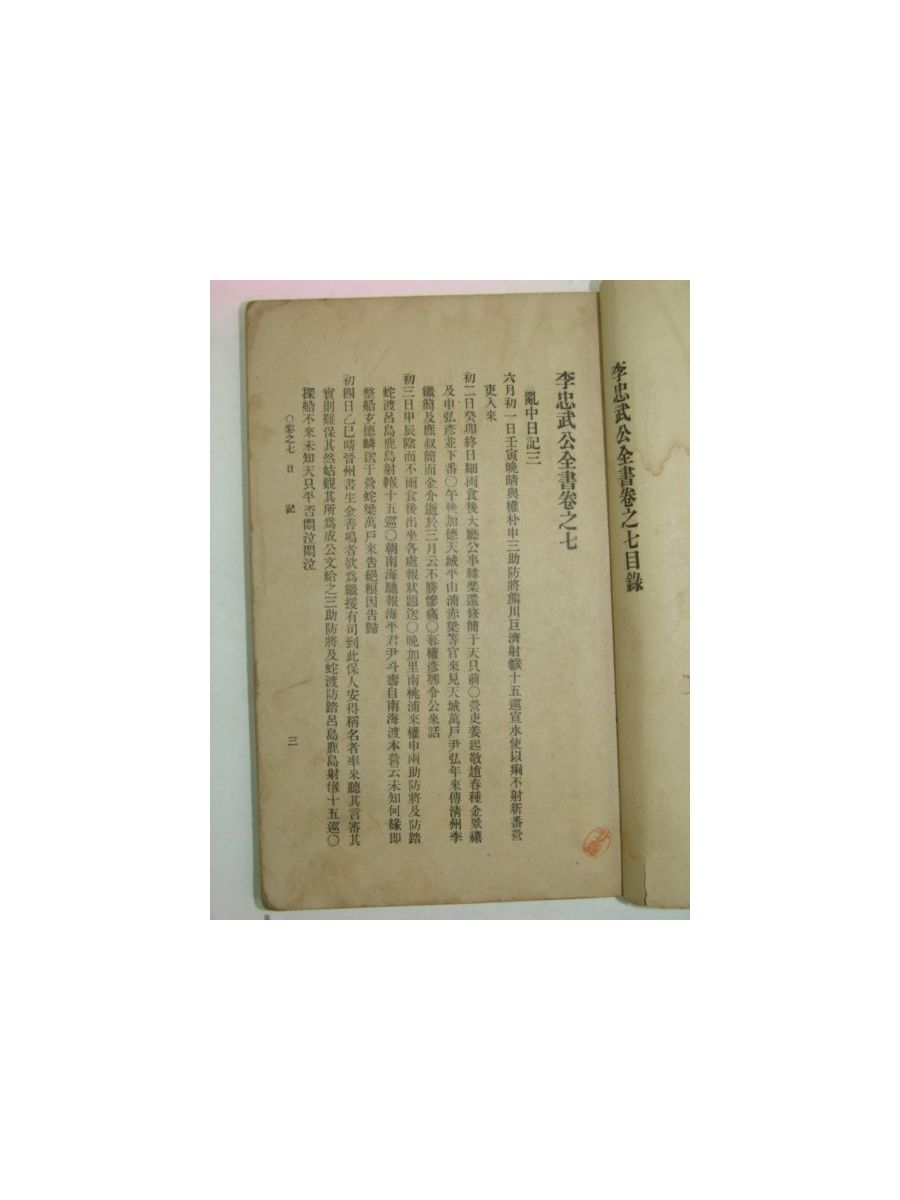 李忠武公全書卷之七目錄
李忠武公全書卷之七
亂中日記三
六月初一日壬寅晚晴與權朴申三助防將熊川巨濟射帿十五巡宣水使以痢不射新番營
吏入來
初二日癸卯終日細雨食後大廳公事韓柴還修簡于天只前○營吏姜起敬趙春種金景禧
及申弘彥並下番○午後加德天城平山浦赤梁等官來見天城萬戶尹弘年來傳淸州李
繼簡及庶叔簡而金介逝於三月云不勝慘痛○暮權彥卿令公來話
初三日甲辰陰而不雨食後出坐各處報狀題送○晚加里南桃浦來權申兩助防將及防踏
蛇渡呂島鹿島射帿十五巡○朝南海馳報海平君尹斗壽自南海渡本營云未知何緣即
整船玄德麟送于營蛇梁萬戶來告絕粮因告歸
初四日乙巳晴晉州書生金善鳴者欲爲繼援有司到此保人安得稱名者率來聽其言審其
實則難保其然姑觀其所爲成公文給之三助防將及蛇渡防踏呂島鹿島射帿十五巡○
探船不來未知天只平否悶泣悶泣
○卷之七 日記 三